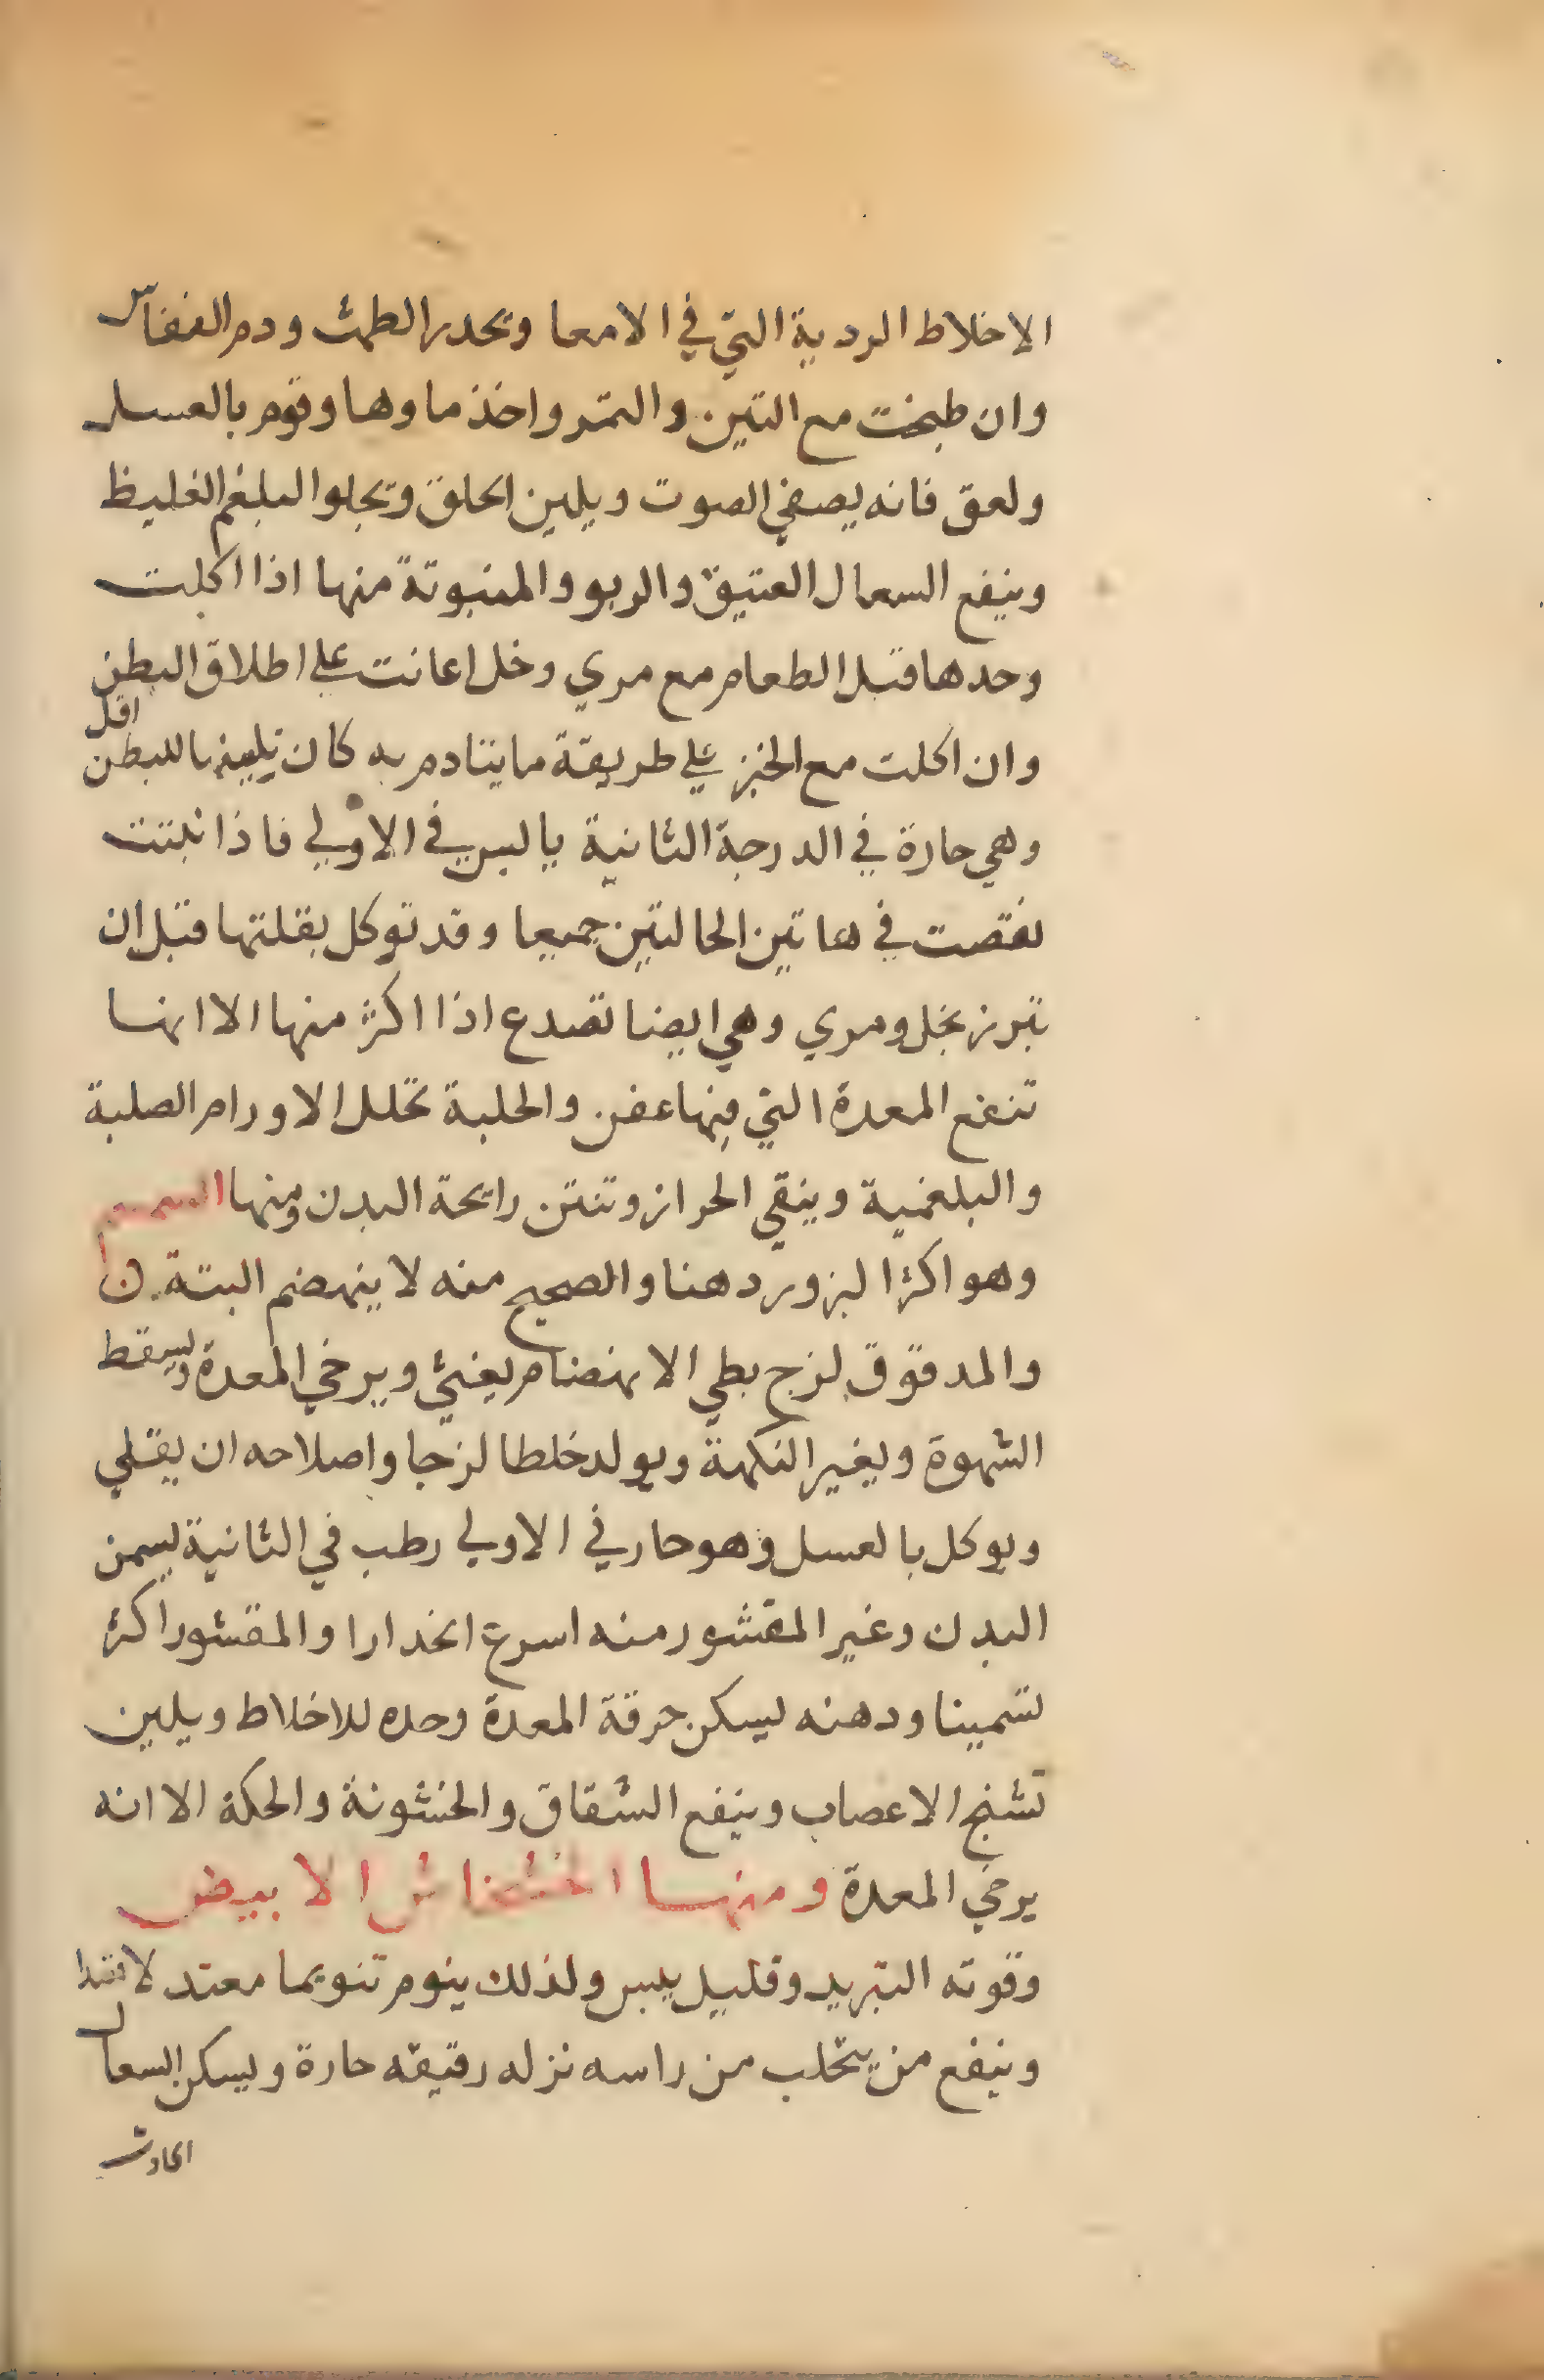 الاخلاط الردية التي في الامعا وتحدر الطمث ودم النفاس
وان طبخت مع التين والتمر واخذ ماوها وقوم بالعسل
ولعق فانه يصفي الصوت ويلين الحلق ويجلوا البلغم الغليظ
وينفع السعال العتيق والربو والمنبوتة منها اذا اكلت
وحدها قبل الطعام مع مري وخل اعانت علي اطلاق البطن
وان اكلت مع الخبز علي طريقة ما يتادم به كان تليينها للبطن اقل
وهي حارة في الدرجة الثانية يابسس في الاولي فاذا نبتت
نقصت في هاتين الحالتين جميعا وقد توكل بقلتها قبل ان
تبرز بخل ومري وهي ايضا تصدع اذا اكثر منها الا انها
تنفع المعدة التي فيها عفن والحلبة تحلل الاورام الصلبة
والبلغمية وينقي الحراز وتنتن رايحة البدن ومنها السمسم
وهو اكثر البزور دهنا والصحيح منه لا ينهضم البتة
والمدقوق لزج بطي الانهضام يغثي ويرخي المعدة ويسقط
الشهوة ويغير النكهة ويولد خلطا لزجا واصلاحه ان يقلي
ويوكل بالعسل وهو حار في الاولي رطب في الثانية يسمن
البدن وغير المقشور منه اسرع انحدارا والمقشور اكثر
تسمينا ودهنه يسكن حرقة المعدة وحده للاخلاط ويلين
تشنج الاعصاب وينفع الشقاق والخشونة والحكة الا انه
يرخي المعدة ومنها الخشخاش الابيض
وقوته التبريد وقليل يبس ولذلك ينوم تنويما معتدلا
وينفع من يتحلب من راسه نزله رقيقه حارة ويسكن السعال
الحادث